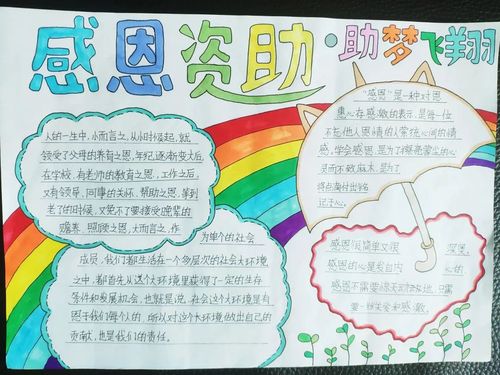 感恩资助·助梦飞翔
人的一生中,小而言之,从小时候起,就
领受了父母的养育之恩,年纪逐渐变大后,
在学校,有老师的教育之恩,工作之后,
又有领导、同事的关怀、帮助之恩,等到
老了的时候,又免不了要接受晚辈的
赡养、照顾之恩,大而言之,作
为单个的社会
成员,我们都生活在一个多层次的社会大环境
之中,都首先从这个大环境里获得了一定的生存
条件和发展机会,也就是说,社会这个大环境是有
恩于我们每个人的,所以对这个大环境做出自己的
贡献,也是我们的责任。
"感恩"是一种对恩
惠心存感激的表示,是每一位
不忘他人恩情的人萦绕心间的情
感,学会感恩,是为了擦亮蒙尘的心
灵而不致麻木,是为了
将点滴付出铭
记于心。
感恩很简单又很 深奥,
感恩的心是发自内 心的,
感恩不需要惊天动地,只需
要一丝笑容和感激。